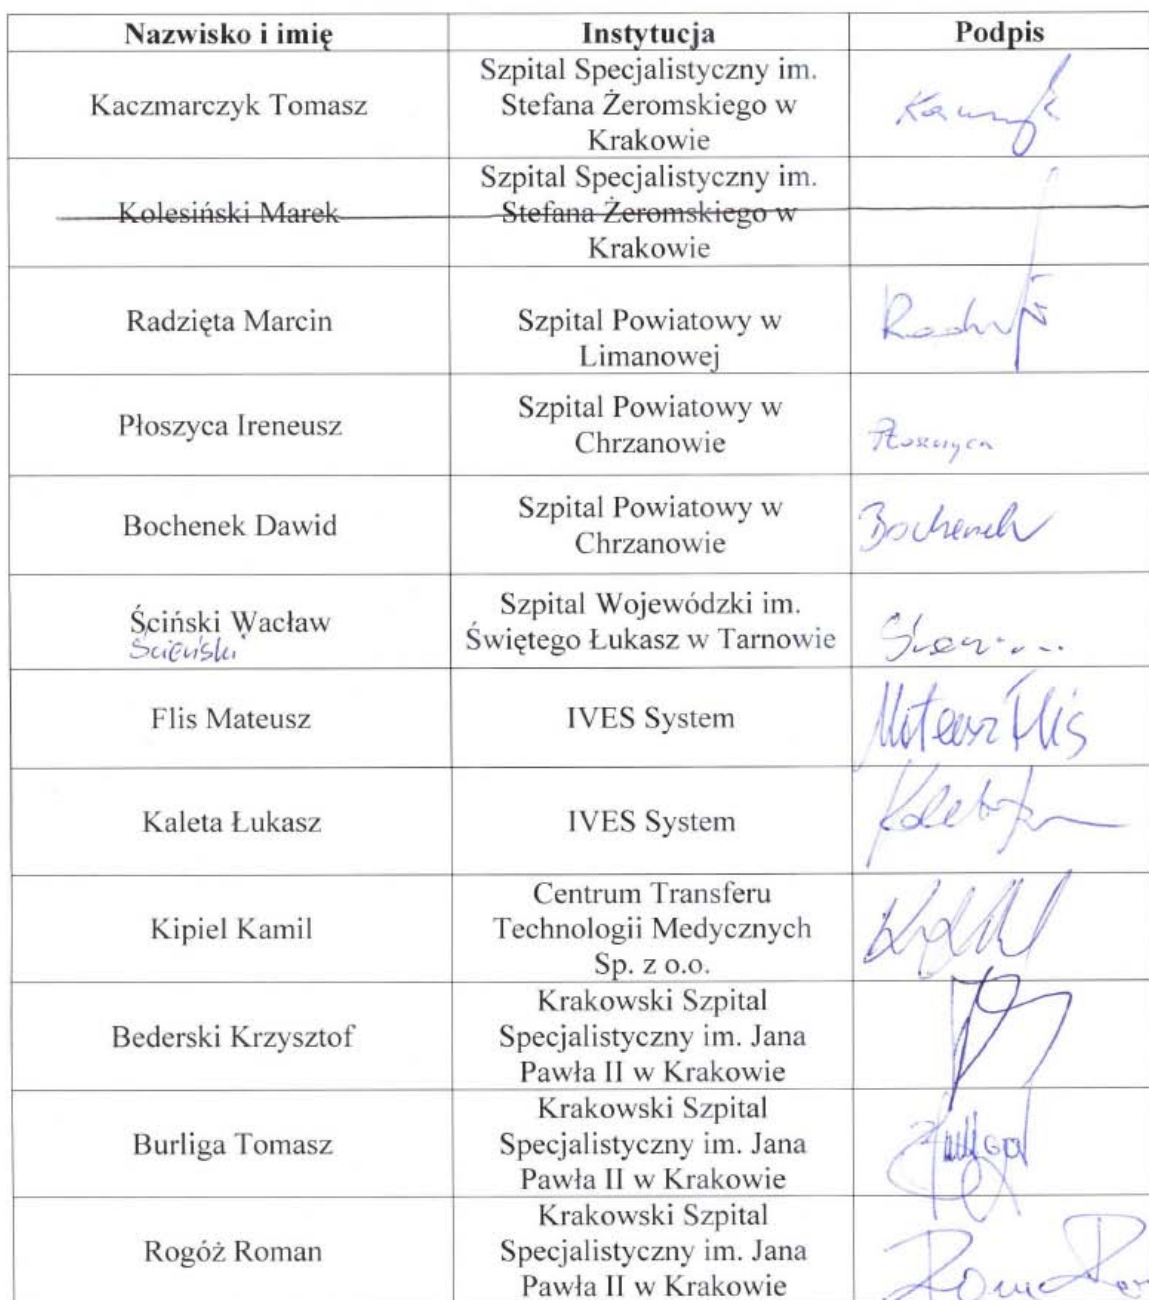 Nazwisko i imię Instytucja Podpis
Kaczmarczyk Tomasz
Szpital Specjalistyczny im.
Stefana Żeromskiego w
Krakowie
Kolesiński Marek
Szpital Specjalistyczny im.
Stefana Żeromskiego w
Krakowie
Radzięta Marcin
Szpital Powiatowy w
Limanowej
Płoszyca Ireneusz
Szpital Powiatowy w
Chrzanowie
Płoszyca
Bochenek Dawid
Szpital Powiatowy w
Chrzanowie
Bochenek
Ściński Wacław
Ścieński
Szpital Wojewódzki im.
Świętego Łukasz w Tarnowie
Flis Mateusz
IVES System
Mateusz Flis
Kaleta Łukasz
IVES System
Kipiel Kamil
Centrum Transferu
Technologii Medycznych
Sp. z o.o.
Bederski Krzysztof
Krakowski Szpital
Specjalistyczny im. Jana
Pawła II w Krakowie
Burliga Tomasz
Krakowski Szpital
Specjalistyczny im. Jana
Pawła II w Krakowie
Rogóż Roman
Krakowski Szpital
Specjalistyczny im. Jana
Pawła II w Krakowie